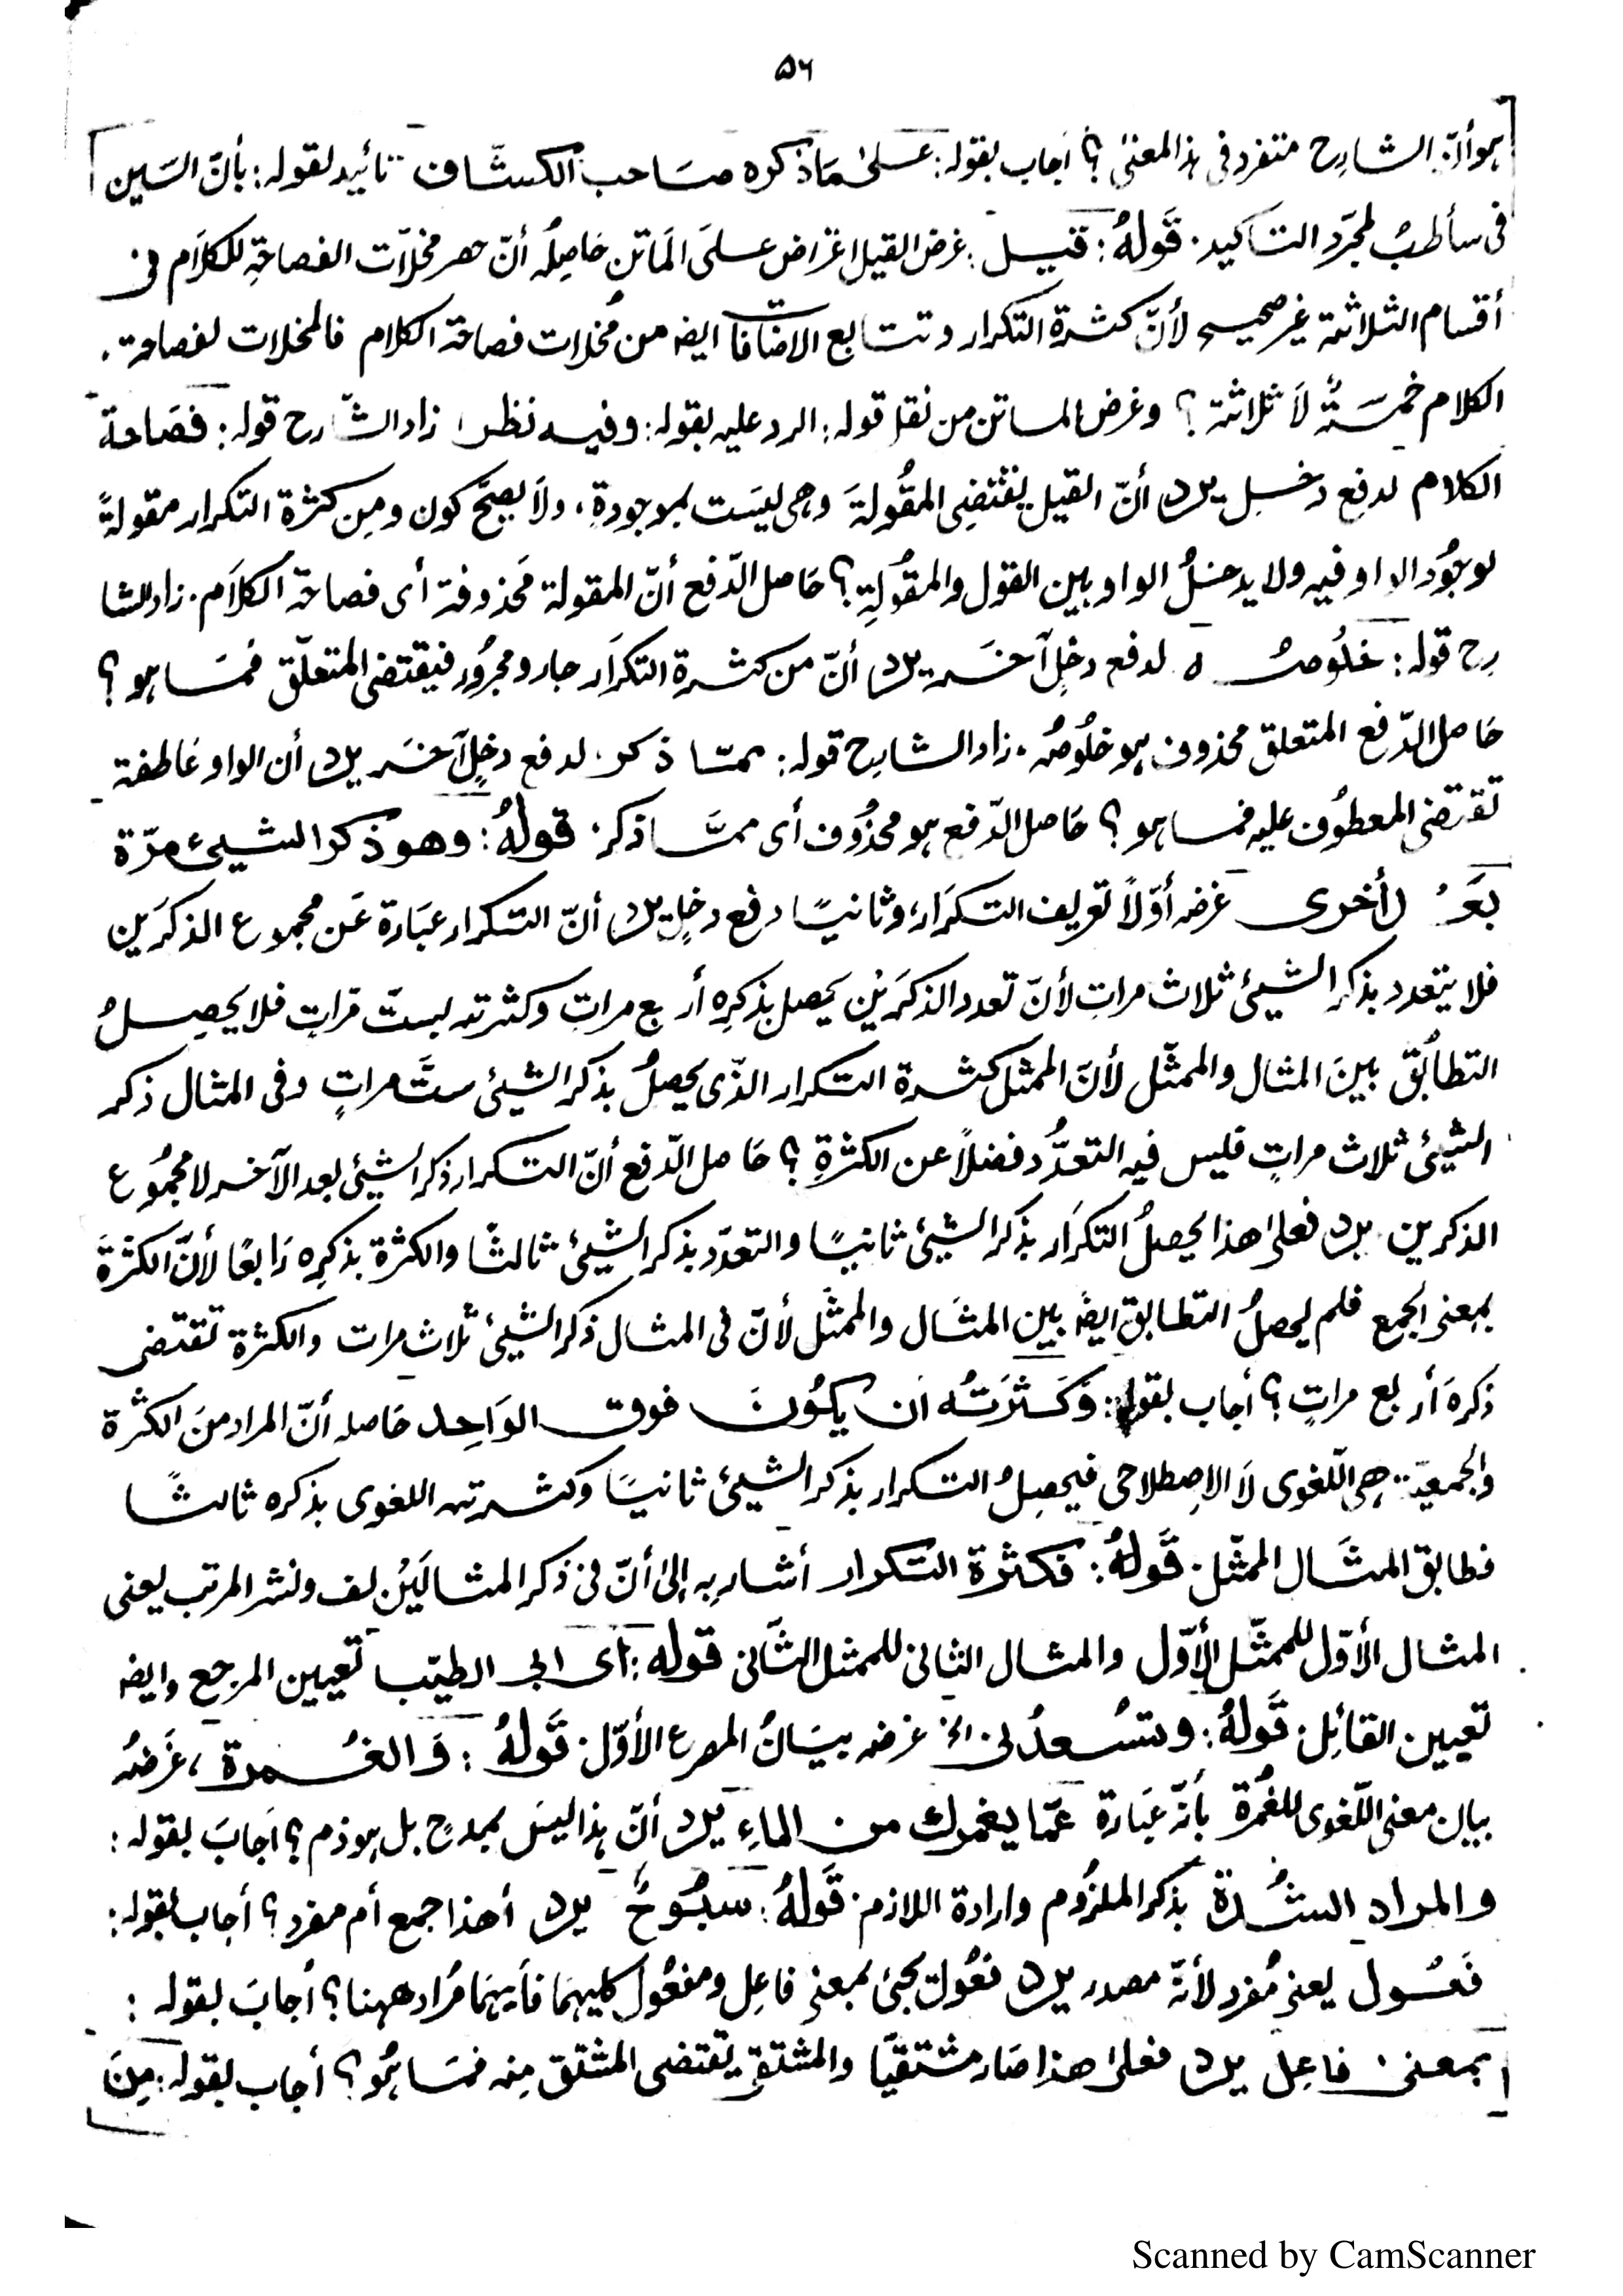 ۵۶
هو أنّ الشارح متفرد فی هذا المعنیٰ؟ اجاب بقوله: علیٰ مَا ذکره صَاحب الکشّاف تائید لقوله: بأنّ السّین
فی سأطلبُ لمجرّد التاکید. قَولهُ: قیل: غرض القیل اعتراض علیَ المَاتن حَاصِلُه أنّ حصر مخلاّت الفصاحةِ للکلاَم فی
أقسام الثلاثة غیر صحیح لأنّ کثرة التکرار و تتابع الاضافات ایضا من مُخلات فصاحة الکلام فالمخلات لفصاحة
الکلام خمسَةٌ لاَ ثلاثة؟ وغرض الماتن من نقل قوله: الرد علیه بقوله: وفیه نظر، زاد الشّارح قوله: فصَاحة
الکلام لدفع دخلٍ یرد أنّ القیل یقتضِی المقُولةَ وهی لیسَت بموجودةٍ، ولاَ یصحّ کون ومِن کثرة التکرار مقولةً
لوجُود الواو فیه ولا یدخلُ الواو بین القول والمقُولةِ؟ حَاصل الدّفع أنّ المقولة مَحذوفة أی فصاحة الکلاَم. زاد الشا
رح قوله: خلُوصُه لدفع دخلٍ آخَر یرد أنّ من کثرة التکرَار جار ومجرُور فیقتضی المتعلّق فمَا هو؟
حَاصل الدّفع المتعلق محذوف هو خلُوصُه. زاد الشارح قوله: ممّا ذکر. لدفع دخلٍ آخَر یرد أن الواو عَاطفة
تقتضی المعطُوف علیه فما هو؟ حَاصل الدّفع هو محذُوف أی ممَّا ذکر. قَولهُ: وهو ذکر الشیئ مرّة
بَعدَ أخری غرضه أوّلاً تعریف التکرَار، وثانیًا دفع دخلٍ یرد أنّ التکرار عبَارة عَن مجموع الذکرَین
فلا یتعدد بذکر الشیئ ثلاث مراتٍ لأنّ تعدد الذکرَیْن یحصل بذکرِه أربع مراتٍ وکثرته بستّ مَراتٍ فلا یحصِلُ
التطابُق بینَ المثال والممثّل لأنّ الممثل کثرة التکرار الذّی یحصلُ بذکر الشیئ ستَّ مراتٍ وفی المثال ذکر
الشیئ ثلاث مراتٍ فلیس فیه التعدُّد فضلاً عن الکثرةِ؟ حَاصل الدّفع أنّ التکرار ذکر الشیئ بعد الآخر لا مجمُوع
الذکرین. یرد فعلیٰ هذا یحصلُ التکرَار بذکر الشیئ ثانیًا والتعدّد بذکر الشیئ ثالثًا والکثرة بذکرِه رَابعًا لأنّ الکثرَةَ
بمعنی الجمع فلم یحصلُ التطابق ایضً بین المثَال والممثّل لأنّ فی المثال ذکر الشیئ ثلاث مرات والکثرة تقتضی
ذکرهَ أربع مراتٍ؟ أجاب بقوله: وَکَثرَتُه اَن یکُونَ فوق الوَاحِد حَاصله أنّ المراد منَ الکثرة
والجمعیّة هی اللّغوی لاَ الاِصطلاحی فیحصِلُ التکرار بذکر الشیئ ثانیًا وکثرته اللغوی بذکره ثالثًا
فطابق المثَال الممثّل. قَولهُ: فکثرة التکرار أشار بِه إلیٰ أنّ فی ذکر المثالَیْن لف ونشر المرتب یعنی
المثال الأوّل للممثّل الأوّل والمثال الثانی للممثل الثّانی قوله: أی ابی الطیّب تعیین المرجع وایضا
تعیین القائل. قَولهُ: وتسُعدُنی الخ غرضه بیَانُ المصرع الأوّل. قَولهُ: وَالغُمرة، غَرَضُه
بیان معنی اللّغوی للغُمرة بأنّه عبَارة عَمّا یغمرك من الماءِ یرد أنّ هذا لیسَ بمدحٍ بل هو ذم؟ أجَابَ بقوله:
والمراد الشّدة بذکر الملزُوم وارادة اللازم. قَولهُ: سبُوحٌ یرد أهذا جمع أم مفرد؟ أجاب بقوله:
فَعُول یعنی مُفرد لأنّه مصدر یرد فعُولٌ یجئ بمعنی فاعِل ومفعُول کلیهمَا فأیهمَا مُراد ههنا؟ أجابَ بقوله:
بمعنیٰ فاعِل یرد فعلیٰ هذا صَار مشتقیًا والمشتق یقتضی المشتق مِنه فمَا هُو؟ أجاب بقوله: مِنَ
Scanned by CamScanner